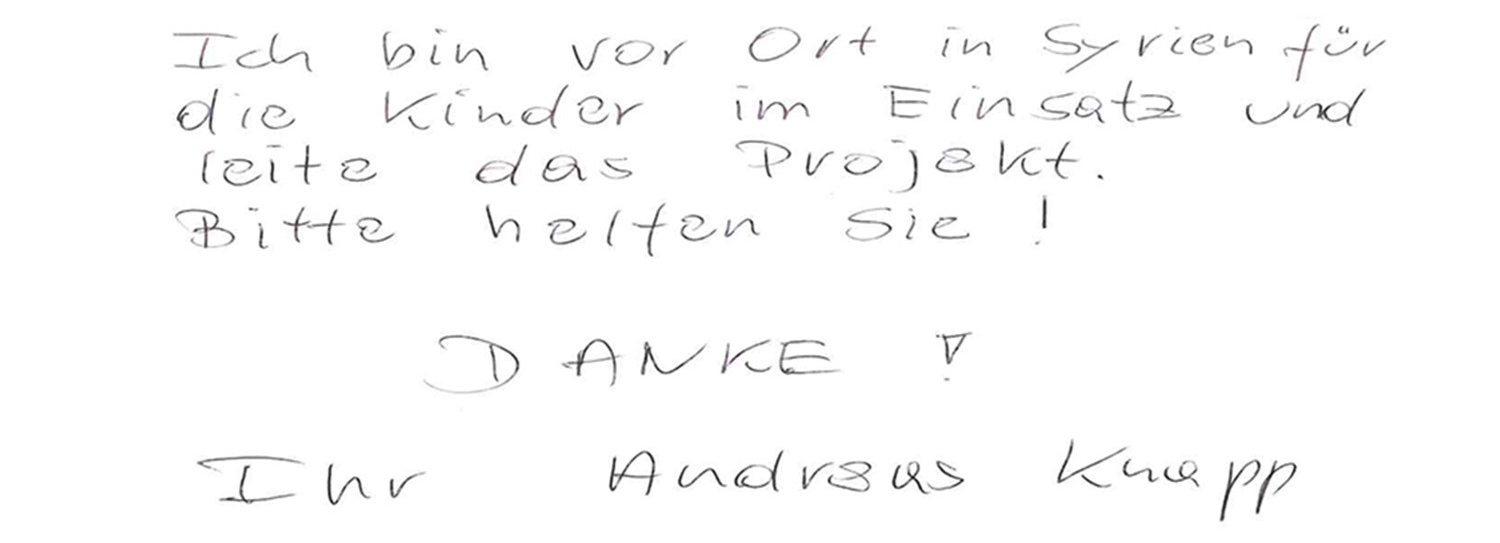 Ich bin vor Ort in Syrien für
die Kinder im Einsatz und
leite das Projekt.
Bitte helfen Sie!
DANKE!
Ihr Andreas Knapp